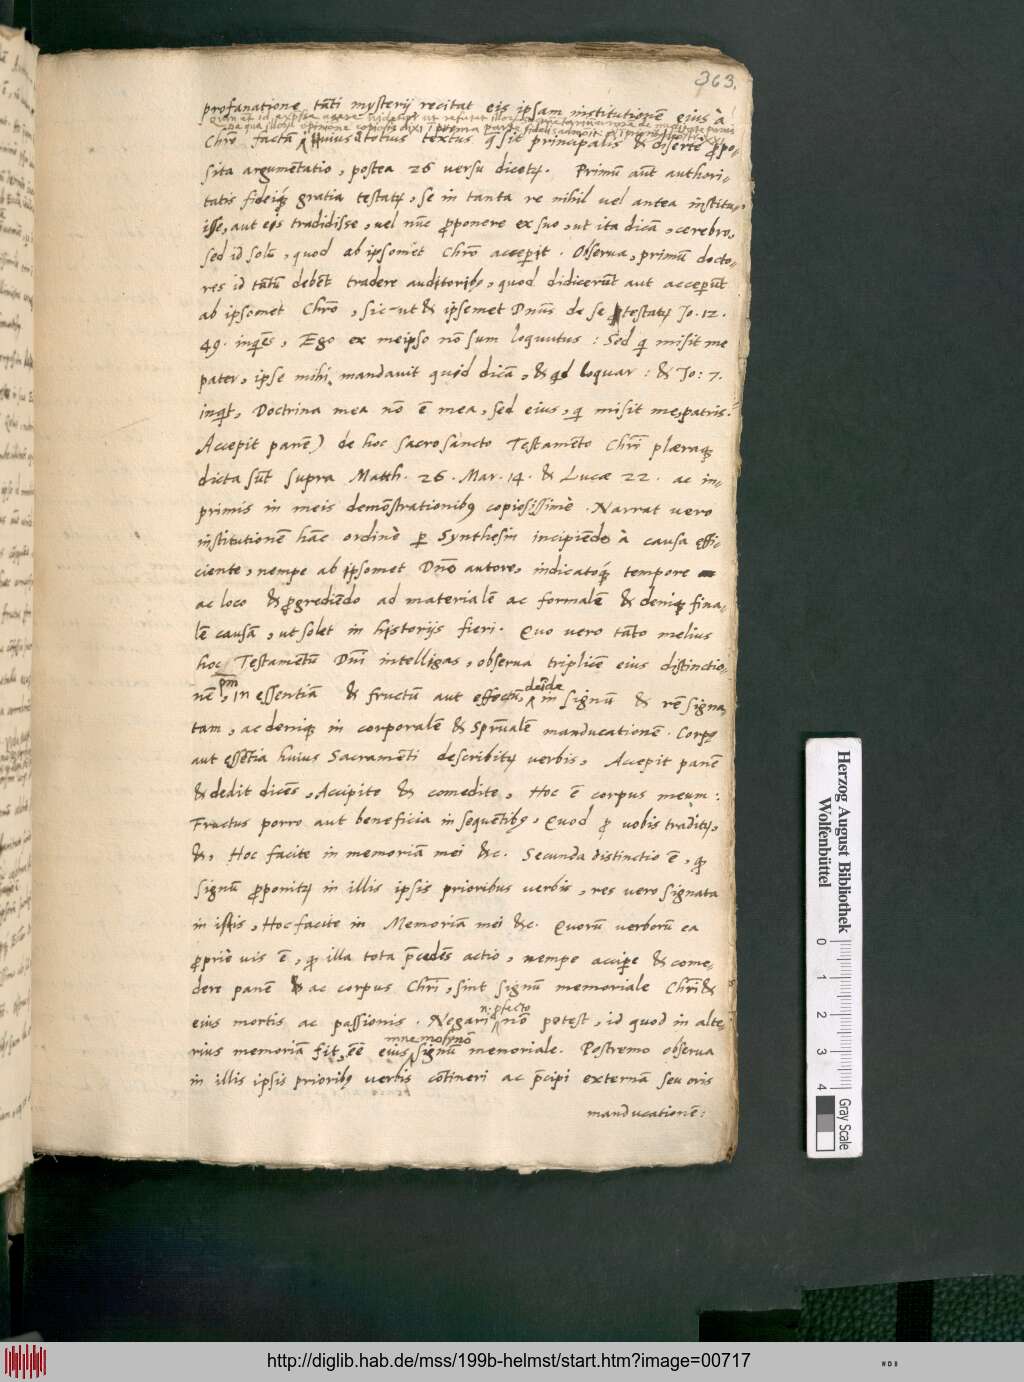 363.
profanatione tāti mysterij recitat eis ipsam institutionē eius à
Chrō facta huius totius textus q̄ sit principalis & diserte ꝓpo-
sita argumētatio, postea 26 versu dicetꝝ. Primū aūt authori-
tatis fideiq́ꝫ gratia testatꝝ, se in tanta re nihil vel antea institu-
isse, aut eis tradidisse, vel nūc ꝓponere ex suo, ut ita dicā, cerebro,
sed id solū, quod ab ipsomet Chrō accepit. Observa, primū docto-
res id tātū debēt tradere auditoribꝫ, quod didicerūt aut acceperūt
ab ipsomet Chrō, sic-ut & ipsemet Dn̄us de se testatꝝ Jo. 12.
49. inquiēs, Ego ex meipso nō sum loquutus: Sed q̄ misit me
pater, ipse mihi mandavit quid dicā, & qd loquar: & Jo: 7.
inq̄t, Doctrina mea nō ē mea, sed eius, q̄ misit me, patris.
Accepit panē) de hoc sacrosancto Testamēto Chrī plæraqꝫ
dicta sūt supra Matth. 26. Mar. 14. & Lucæ 22. ac in-
primis in meis demōstrationibꝫ copiosissimè. Narrat vero
institutionē hāc ordinè ꝑ Synthesin incipiēdo à causa effi-
ciente, nempe ab ipsomet Dn̄o autore, indicatoq́ꝫ tempore
ac loco & ꝓgrediēdo ad materialē ac formalē & deniqꝫ fina-
lē causā, ut solet in historijs fieri. Quo vero tāto melius
hoc Testamētū Dn̄i intelligas, observa triplicē eius distinctio-
nē, in essentiā & fructū aut effectū, deīde in signū & rē signa-
tam, ac deniqꝫ in corporalē & Sprūalē manducationē. Corpꝫ
aut essētia huius Sacramēti describitꝝ verbis, Accepit panē
& dedit dicēs, Accipite & comedite, Hoc ē corpus meum:
Fructus porro aut beneficia in sequētibꝫ, Quod ꝓ vobis traditꝝ,
&, Hoc facite in memoriā mei &c. Secunda distinctio ē, qꝫ
signū ꝓponitꝝ in illis ipsis prioribus verbis, res vero signata
in istis, Hoc facite in Memoriā mei &c. Quorū verborū ea
ꝓpriè vis ē, qꝫ illa tota p̄cedēs actio, nempe accipe & come-
dere panē & ac corpus Chrī, sint signū memoriale Chrī &
eius mortis ac passionis. Negari n. ꝓfecto nō potest, id quod in alte-
rius memoriā fit, ēē eius signū memoriale. Postremo observa
in illis ipsis prioribꝫ verbis cōtineri ac p̄cipi externā seu oris
manducationē:
Herzog August Bibliothek
Wolfenbüttel
0 1 2 3 4
Gray Scale
http://diglib.hab.de/mss/199b-helmst/start.htm?image=00717